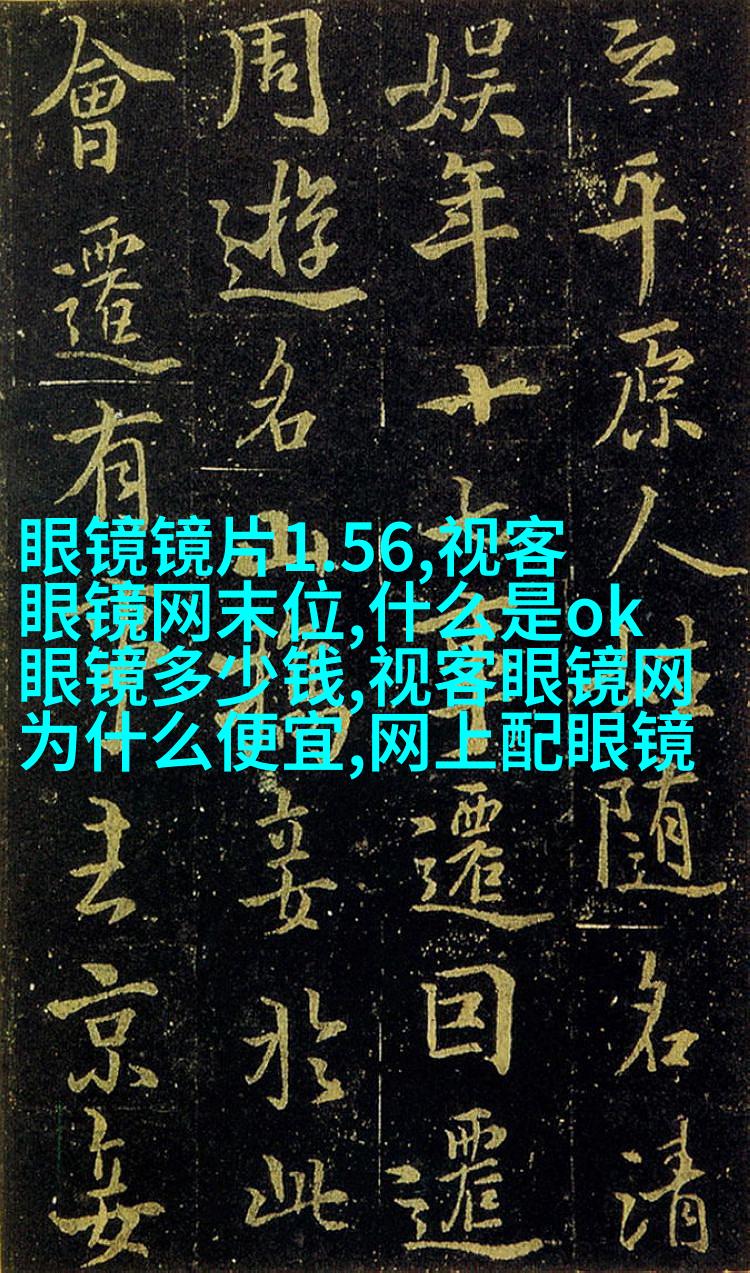 眼镜镜片1.56,视客
眼镜网末位,什么是ok
眼镜多少钱,视客眼镜网
为什么便宜,网上配眼镜
之平原人姓随名清
娱年十七遷回遷
周遊名山於此
會遷有京